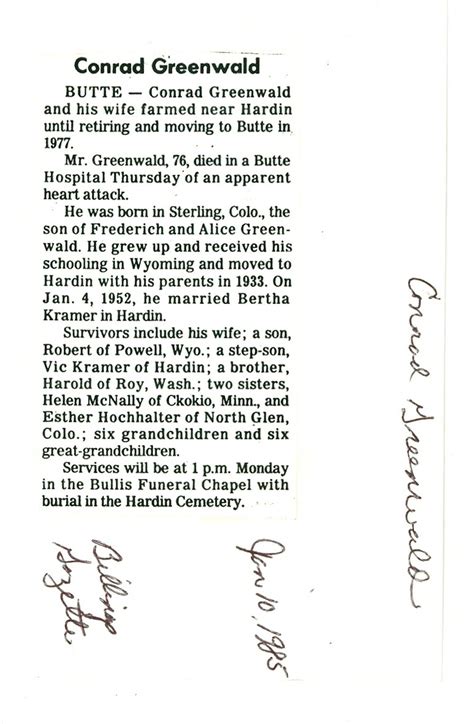 Conrad Greenwald
BUTTE — Conrad Greenwald
and his wife farmed near Hardin
until retiring and moving to Butte in
1977.
Mr. Greenwald, 76, died in a Butte
Hospital Thursday of an apparent
heart attack.
He was born in Sterling, Colo., the
son of Frederich and Alice Green-
wald. He grew up and received his
schooling in Wyoming and moved to
Hardin with his parents in 1933. On
Jan. 4, 1952, he married Bertha
Kramer in Hardin.
Survivors include his wife; a son,
Robert of Powell, Wyo.; a step-son,
Vic Kramer of Hardin; a brother,
Harold of Roy, Wash.; two sisters,
Helen McNally of Ckokio, Minn., and
Esther Hochhalter of North Glen,
Colo.; six grandchildren and six
great-grandchildren.
Services will be at 1 p.m. Monday
in the Bullis Funeral Chapel with
burial in the Hardin Cemetery.
Billings
Gazette
Jan 10, 1985
Conrad Greenwald